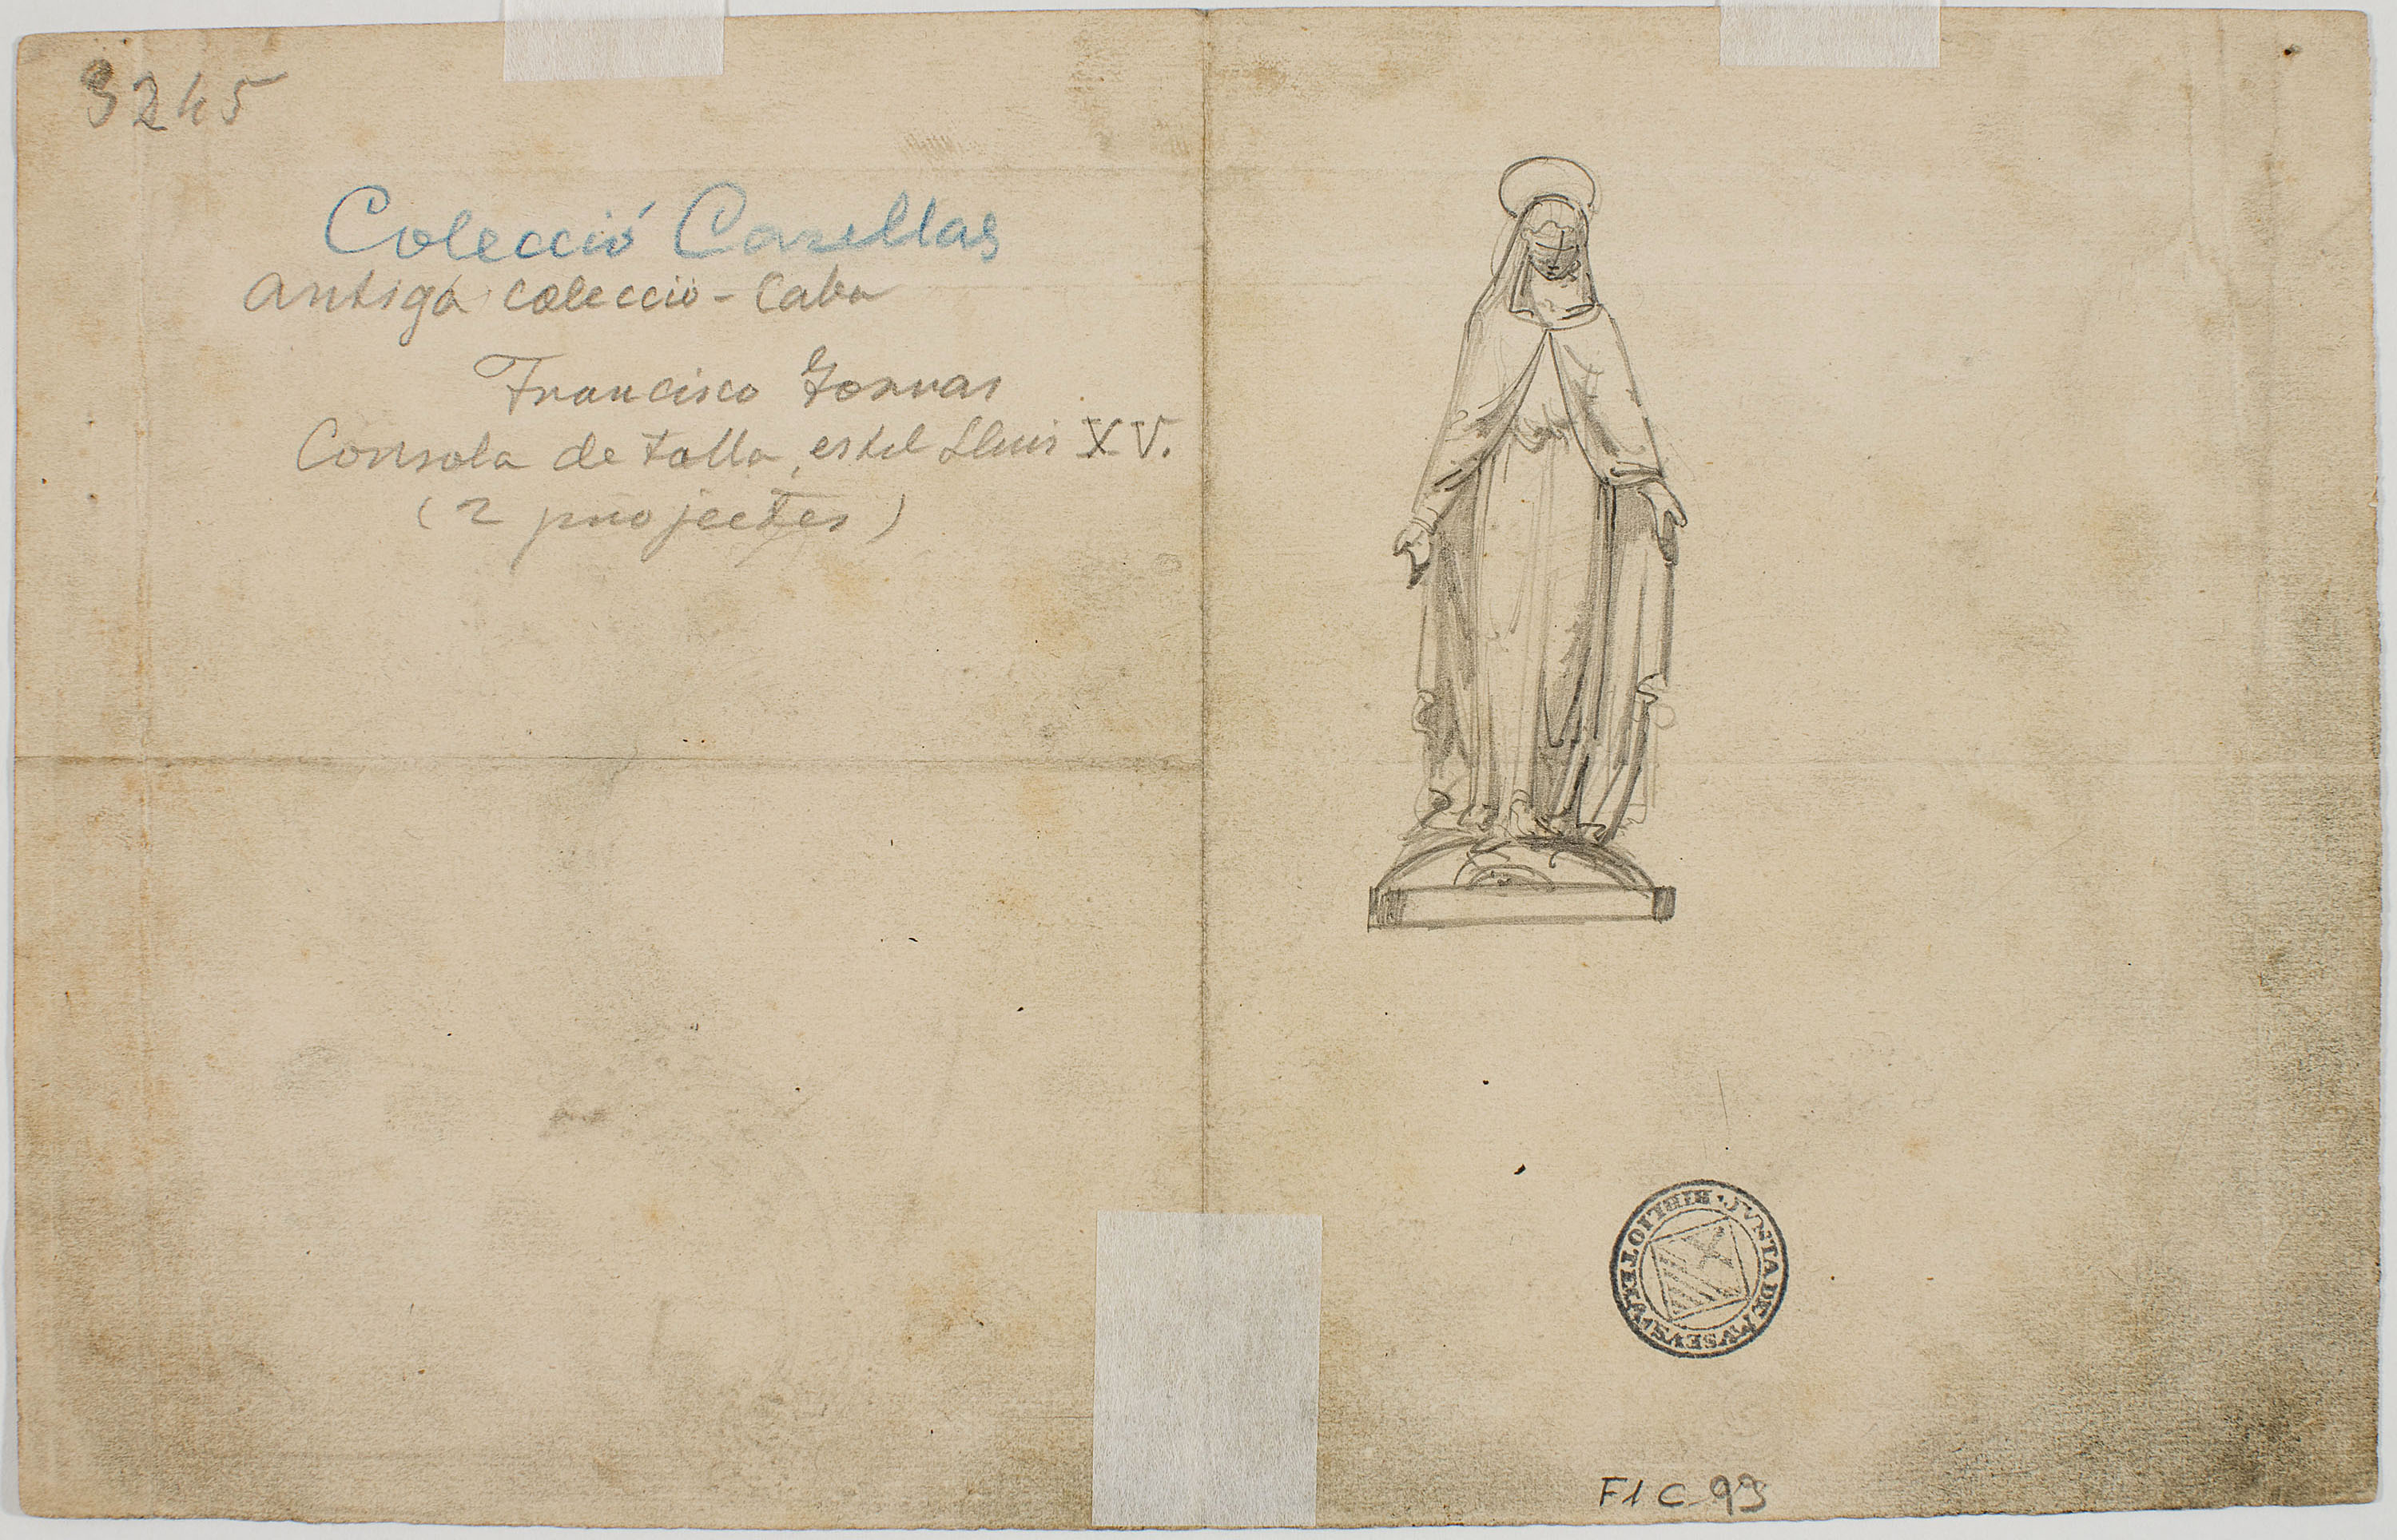 3245
Colecció Casellas
antiga coleccio - Caba
Francisco Tornas
Consola de talla, estil Lluis XV.
(2 projectes)
JVNTA DE MVSEVS · BIBLIOTECA
F1 C 93